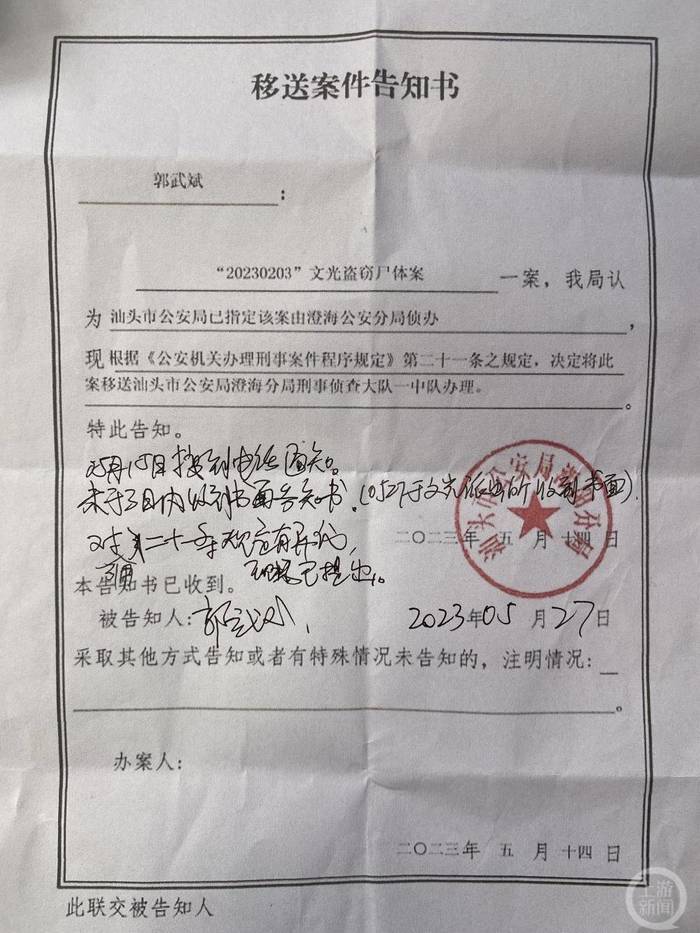 移送案件告知书
郭武斌：
“20230203”文光盗窃尸体案一案，我局认
为汕头市公安局已指定该案由澄海公安分局侦办，
现根据《公安机关办理刑事案件程序规定》第二十一条之规定，决定将此
案移送汕头市公安局澄海分局刑事侦查大队一中队办理。
特此告知。
接到电话通知。
未于3日内收到书面告知书.(0527于文光派出所收到书面).
对第二十一条
二〇二三年 五 月 十四 日
已提出.
本告知书已收到。
被告知人:郭武斌 2023年05月27日
采取其他方式告知或者有特殊情况未告知的，注明情况:
。
办案人:
二〇二三年 五 月 十四 日
此联交被告知人
上游新闻